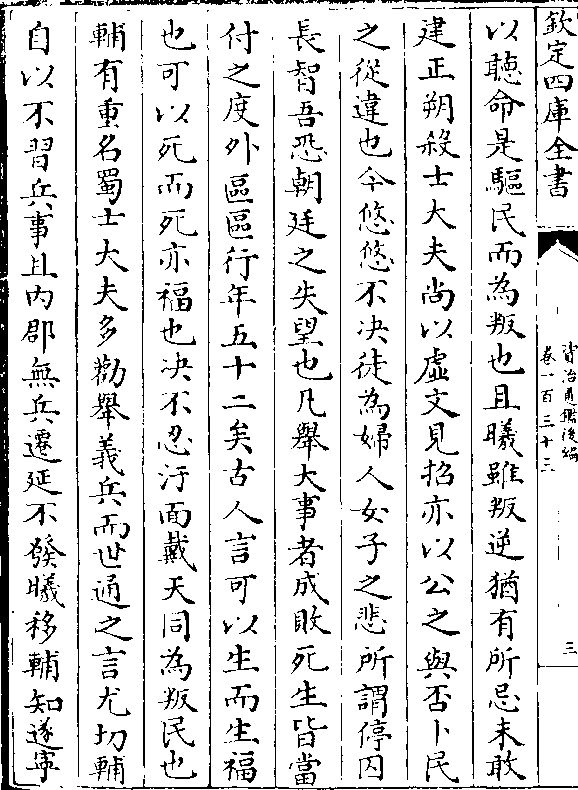 欽定四庫全書
資治通鑑後編
卷一百三十三
三
以聽命是驅民而為叛也且曦雖叛逆猶有所忌未敢
建正朔殺士大夫尚以虛文見招亦以公之與否卜民
之從違也今悠悠不決徒為婦人女子之悲所謂停囚
長智吾恐朝廷之失望也凡舉大事者成敗死生皆當
付之度外區區行年五十二矣古人言可以生而生福
也可以死而死亦福也決不忍汙面戴天同為叛民也
輔有重名蜀士大夫多勸舉義兵而世通之言尤切輔
自以不習兵事且内郡無兵遷延不發曦移輔知遂寧